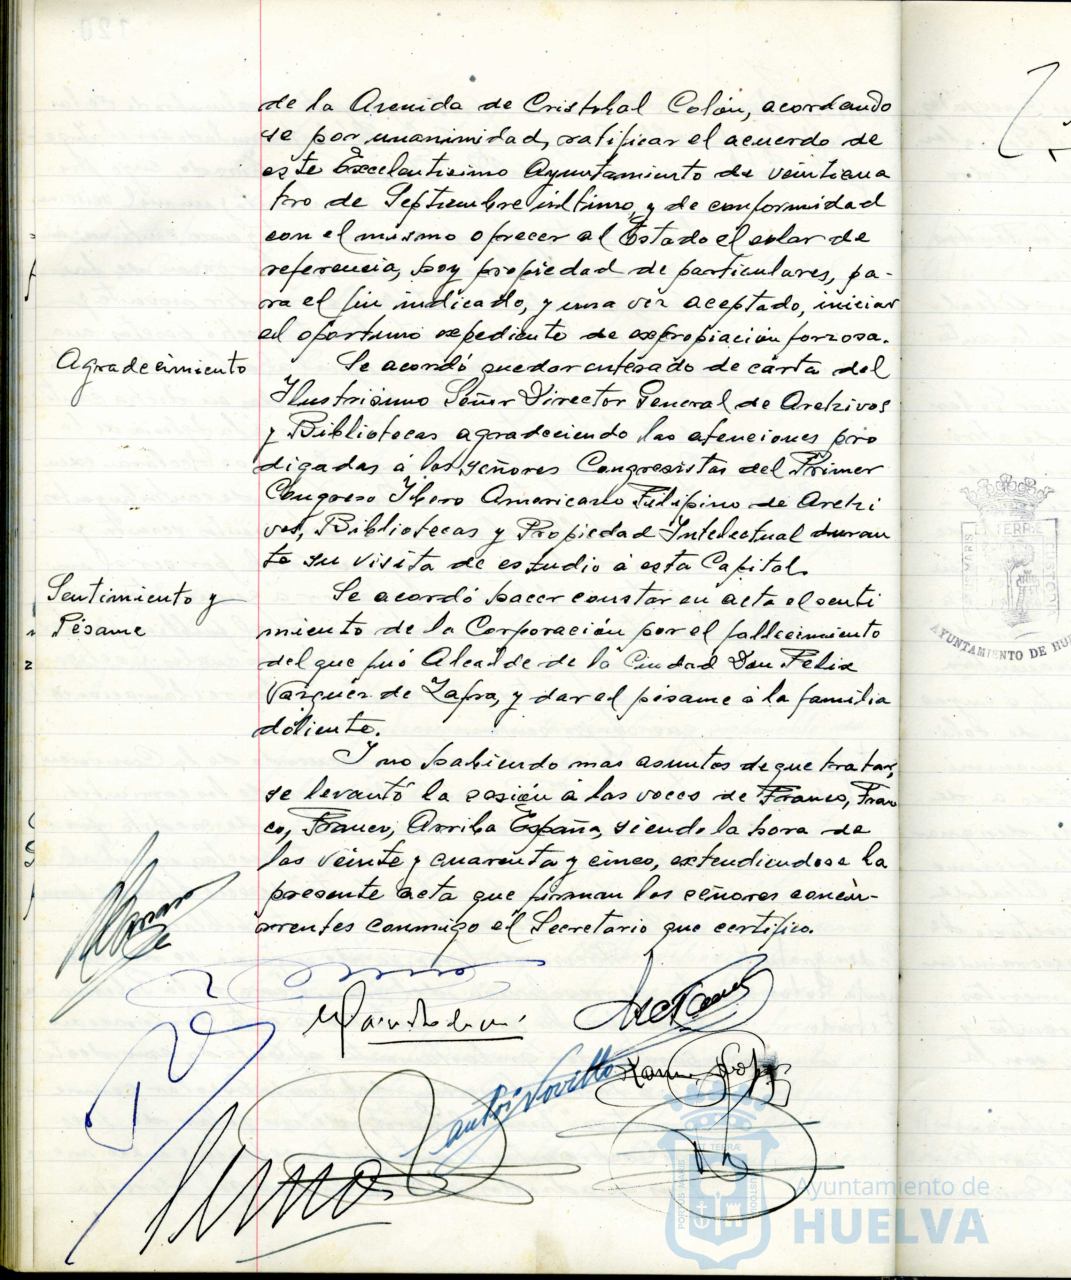 de la Avenida de Cristobal Colón, acordando
se por unanimidad, ratificar el acuerdo de
este Excelentisimo Ayuntamiento de veinticua
tro de Septiembre último, y de conformidad
con el mismo ofrecer al Estado el solar de
referencia, hoy propiedad de particulares, pa-
ra el fin indicado, y una vez aceptado, iniciar
el oportuno expediente de expropiación forzosa.
Agradecimiento
Se acordó quedar enterado de carta del
Ilustrisimo Señor Director General de Archivos
y Bibliotecas agradeciendo las atenciones pro
digadas á los señores Congresistas del Primer
Congreso Ibero Americano Filipino de Archi
vos, Bibliotecas y Propiedad Intelectual duran
te su visita de estudio á esta Capital.
Sentimiento y
Pésame
Se acordó hacer constar en acta el senti
miento de la Corporación por el fallecimiento
del que fué Alcalde de la Ciudad Don Felix
Vazquez de Zafra, y dar el pésame á la familia
doliente.
Y no habiendo mas asuntos de que tratar,
se levantó la sesión á las voces de Franco, Fran
co, Franco, Arriba España, siendo la hora de
las veinte y cuarenta y cinco, extendiendose la
presente acta que firman los señores concu-
rrentes conmigo el Secretario que certifico.
AYUNTAMIENTO DE HUE
Ayuntamiento de
HUELVA